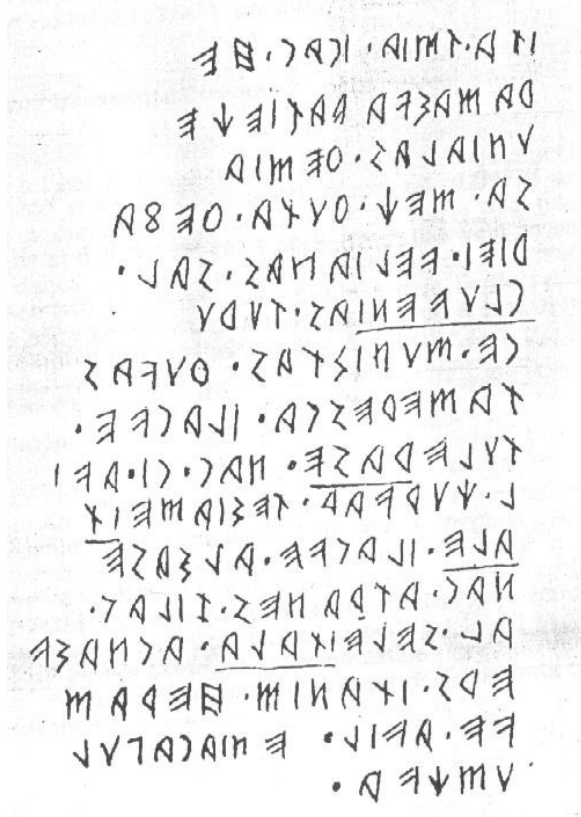 𐌉𐌕𐌀·𐌕𐌌𐌉𐌀·𐌉𐌂𐌀𐌂·𐌇𐌄
𐌓𐌀𐌌𐌀𐌔𐌅𐌀 𐌅𐌀𐌕𐌉𐌄𐌙𐌄
𐌖𐌍𐌉𐌀𐌋𐌀𐌔·𐌈𐌄𐌌𐌉𐌀
𐌔𐌀·𐌌𐌄𐌙·𐌈𐌖𐌕𐌀·𐌈𐌄𐌚𐌀
𐌓𐌉𐌄𐌉·𐌅𐌄𐌋𐌉𐌀𐌍𐌀𐌔·𐌔𐌀𐌋·
𐌂𐌋𐌖𐌅𐌄𐌍𐌉𐌀𐌔·𐌕𐌖𐌓𐌖
𐌂𐌄·𐌌𐌖𐌍𐌉𐌔𐌕𐌀𐌔·𐌈𐌖𐌅𐌀𐌔
𐌕𐌀𐌌𐌄𐌓𐌄𐌔𐌂𐌀·𐌉𐌋𐌀𐌂𐌅𐌄·
𐌕𐌖𐌋𐌄𐌓𐌀𐌔𐌄·𐌍𐌀𐌂·𐌂𐌉·𐌀𐌅𐌉
𐌋·𐌙𐌖𐌓𐌅𐌀𐌓·𐌕𐌄𐌔𐌉𐌀𐌌𐌄𐌉𐌕
𐌀𐌋𐌄·𐌉𐌋𐌀𐌂𐌅𐌄·𐌀𐌋𐌔𐌀𐌔𐌄
𐌍𐌀𐌂·𐌀𐌕𐌓𐌀𐌍𐌄𐌔·𐌆𐌉𐌋𐌀𐌂·
𐌀𐌋·𐌔𐌄𐌋𐌄𐌉𐌕𐌀𐌋𐌀·𐌀𐌂𐌍𐌀𐌔𐌅
𐌄𐌓𐌔·𐌉𐌕𐌀𐌍𐌉𐌌·𐌇𐌄𐌓𐌀𐌌
𐌅𐌄·𐌀𐌅𐌉𐌋·𐌄𐌍𐌉𐌀𐌂𐌀𐌐𐌖𐌋
𐌖𐌌𐌙𐌅𐌀·